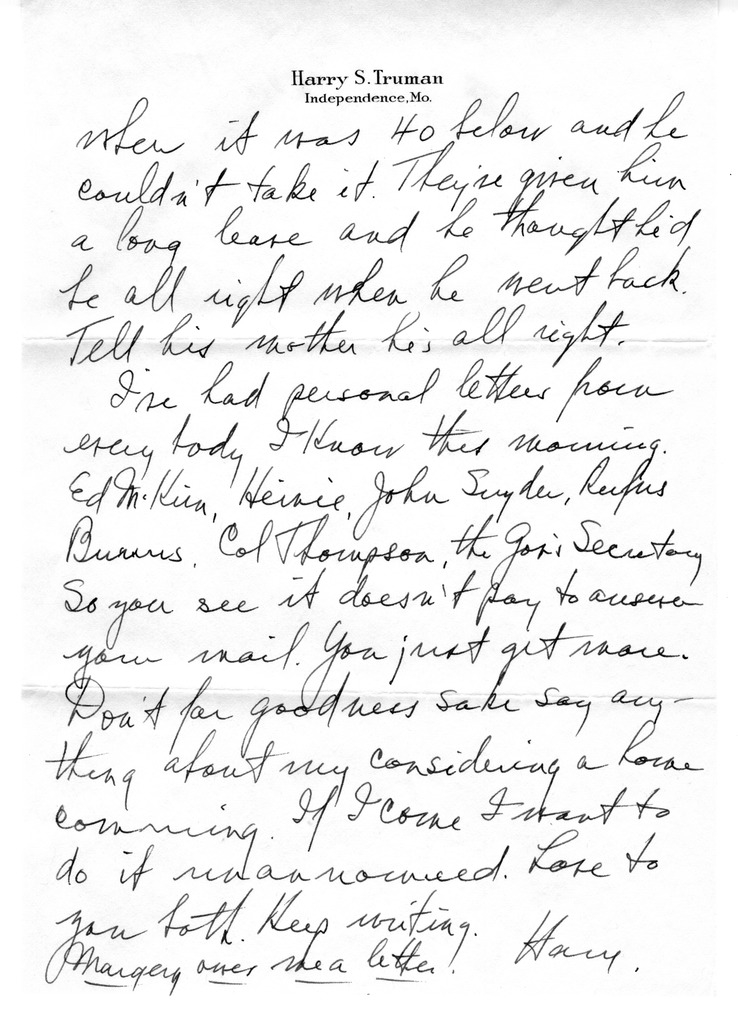 Harry S. Truman
Independence, Mo.
when it was 40 below and he
couldn't take it. They've given him
a long leave and he thought he'd
be all right when he went back.
Tell his mother he's all right.
I've had personal letters from
every body I know this morning.
Ed McKim, Heinie, John Snyder, Rufus
Burrus, Col Thompson, the Gov's Secretary
So you see it doesn't pay to answer
your mail. You just get more.
Don't for goodness sake say any-
thing about my considering a home
comming. If I come I want to
do it unannounced. Love to
you both. Keep writing.
Harry.
Margery owes me a letter!